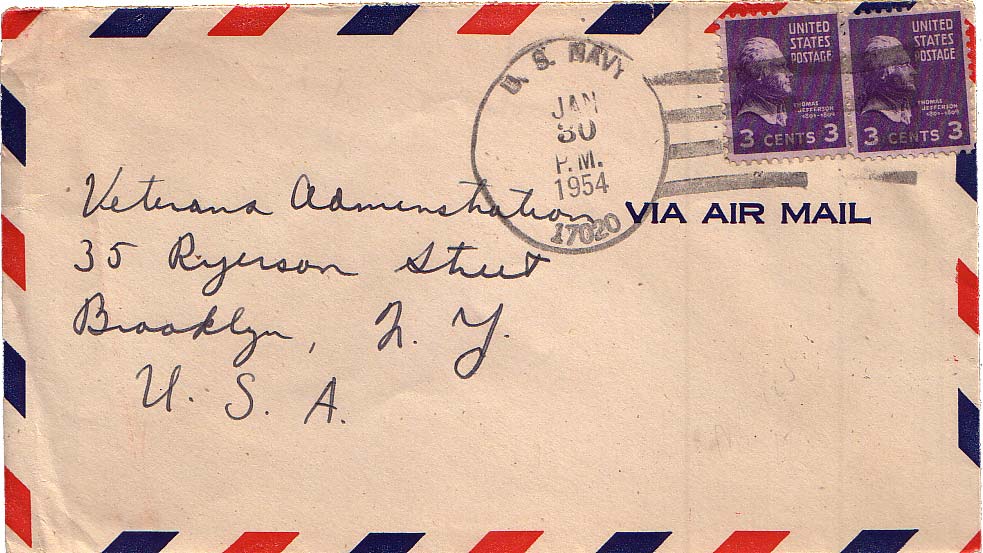 U. S. NAVY
JAN
30
P.M.
1954
17020
UNITED
STATES
POSTAGE
THOMAS
JEFFERSON
1801-1809
3 CENTS 3
UNITED
STATES
POSTAGE
THOMAS
JEFFERSON
1801-1809
3 CENTS 3
VIA AIR MAIL
Veterans Adminstration
35 Ryerson Street
Brooklyn, N. Y.
U. S. A.